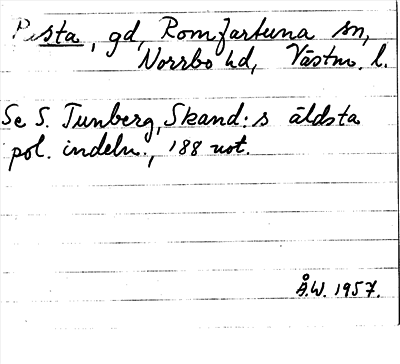 Pesta, gd, Romfartuna sn,
Norrbo hd, Västm. l.
Se S. Tunberg, Skand:s äldsta
pol. indeln., 188 not.
Å.W. 1957.